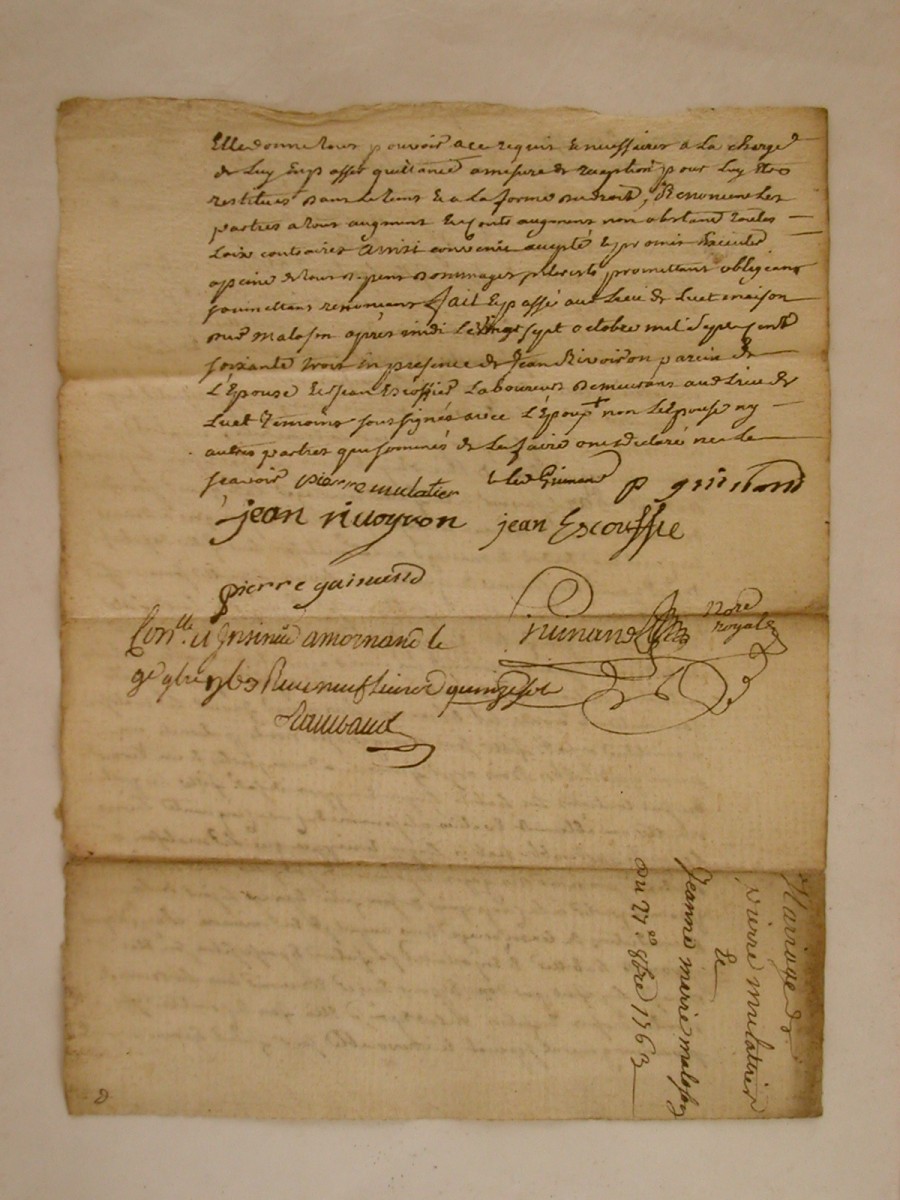 Elle donne tout pouvoir a ce requis & necessaires a la charge
de luy en passer quittance a mesure de reception pour luy etre
restitués dans le tems & a la forme du droit, Renoncent les
parties a tous augment & contr augment non obstant toutes
Loix contraires ainsi convenu accepté & promis executer
a peine de tous depens dommages interests promettant obligeant
soumettant renonceant fait & passé aud lieu de Luet maison
dud malosson après midi le vingt sept octobre mil sept cent
soixante trois en presence de Jean Rivoiron parein de
L'Epouse & Jean Escoffier Laboureurs demeurans aud Lieu de
Luet temoins soussignés avec L'Epoux non L'Epouse ny
autres parties que sommés de le faire ont declaré ne le
scavoir pierre mulatier p guimond
jean rivoyron jean Escouffie
pierre guimond
Con.lle & Insinué a mornand le
9e 9bre Receu neuf livres quinze sols
guimand Nore royal
Raimbaud
Mariage de
pierre mulattier
&
Jeanne marie malosson
du 27e 8bre 1763